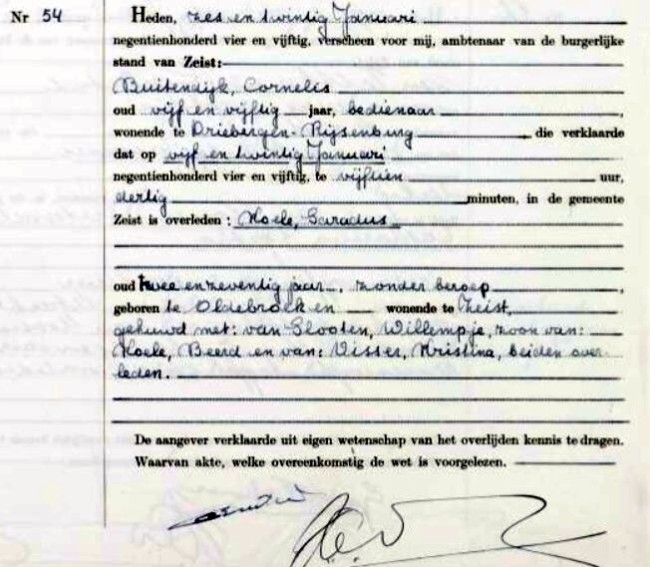 Nr 54
Heden, zes en twintig Januari
negentienhonderd vier en vijftig, verscheen voor mij, ambtenaar van de burgerlijke
stand van Zeist:
Buitendijk, Cornelis
oud vijf en vijftig jaar, bedienaar,
wonende te Driebergen-Rijsenburg, die verklaarde
dat op vijf en twintig Januari
negentienhonderd vier en vijftig, te vijftien uur,
dertig minuten, in de gemeente
Zeist is overleden: Hoele, Garadus
oud twee en zeventig jaar.. zonder beroep,
geboren te Oldebroek en wonende te Zeist,
gehuwd met: van Slooten, Willempje, zoon van:
Hoele, Beerd en van: Visser, Hristina, beiden over-
leden.
De aangever verklaarde uit eigen wetenschap van het overlijden kennis te dragen.
Waarvan akte, welke overeenkomstig de wet is voorgelezen.